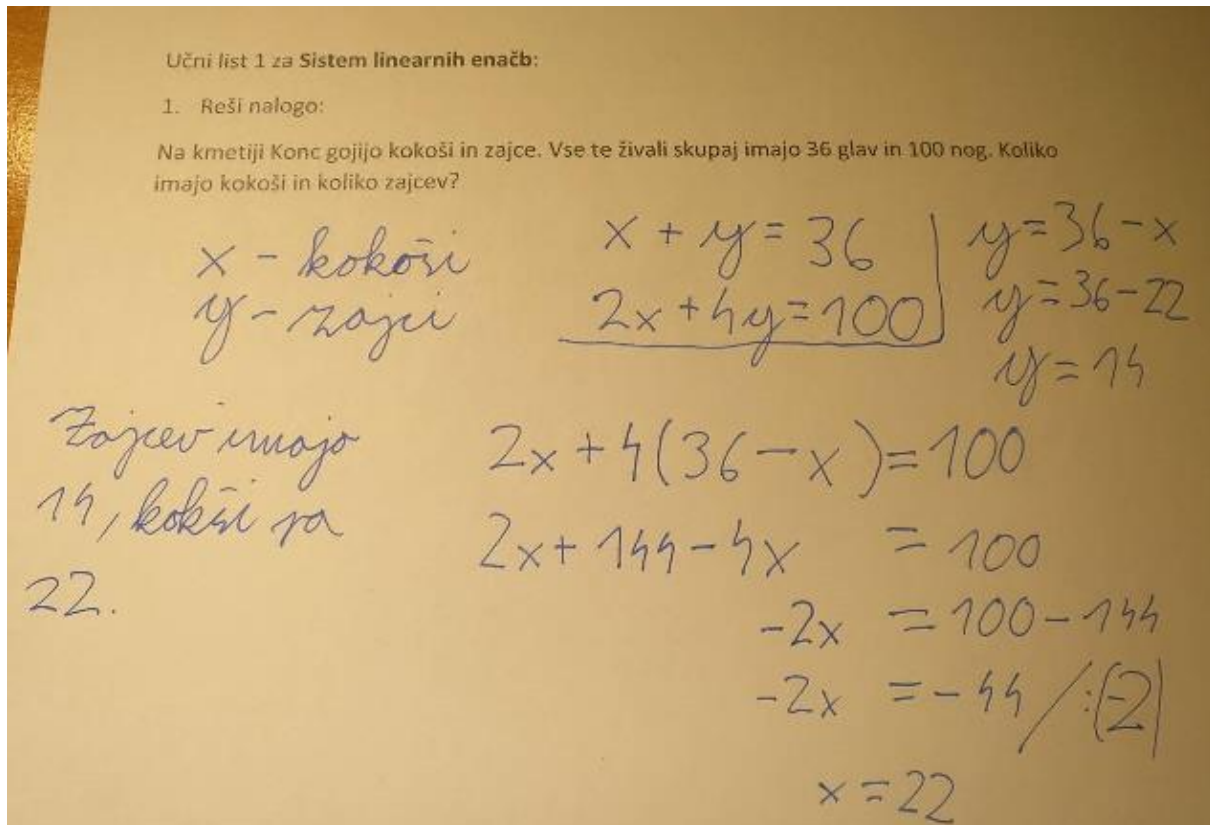 Učni list 1 za Sistem linearnih enačb:
1. Reši nalogo:
Na kmetiji Konc gojijo kokoši in zajce. Vse te živali skupaj imajo 36 glav in 100 nog. Koliko
imajo kokoši in koliko zajcev?
x - kokoši
y - zajci
x + y = 36
2x + 4y = 100
y = 36 - x
y = 36 - 22
y = 14
2x + 4(36 - x) = 100
2x + 144 - 4x = 100
-2x = 100 - 144
-2x = -44 /:(-2)
x = 22
Zajcev imajo
14, kokši pa
22.